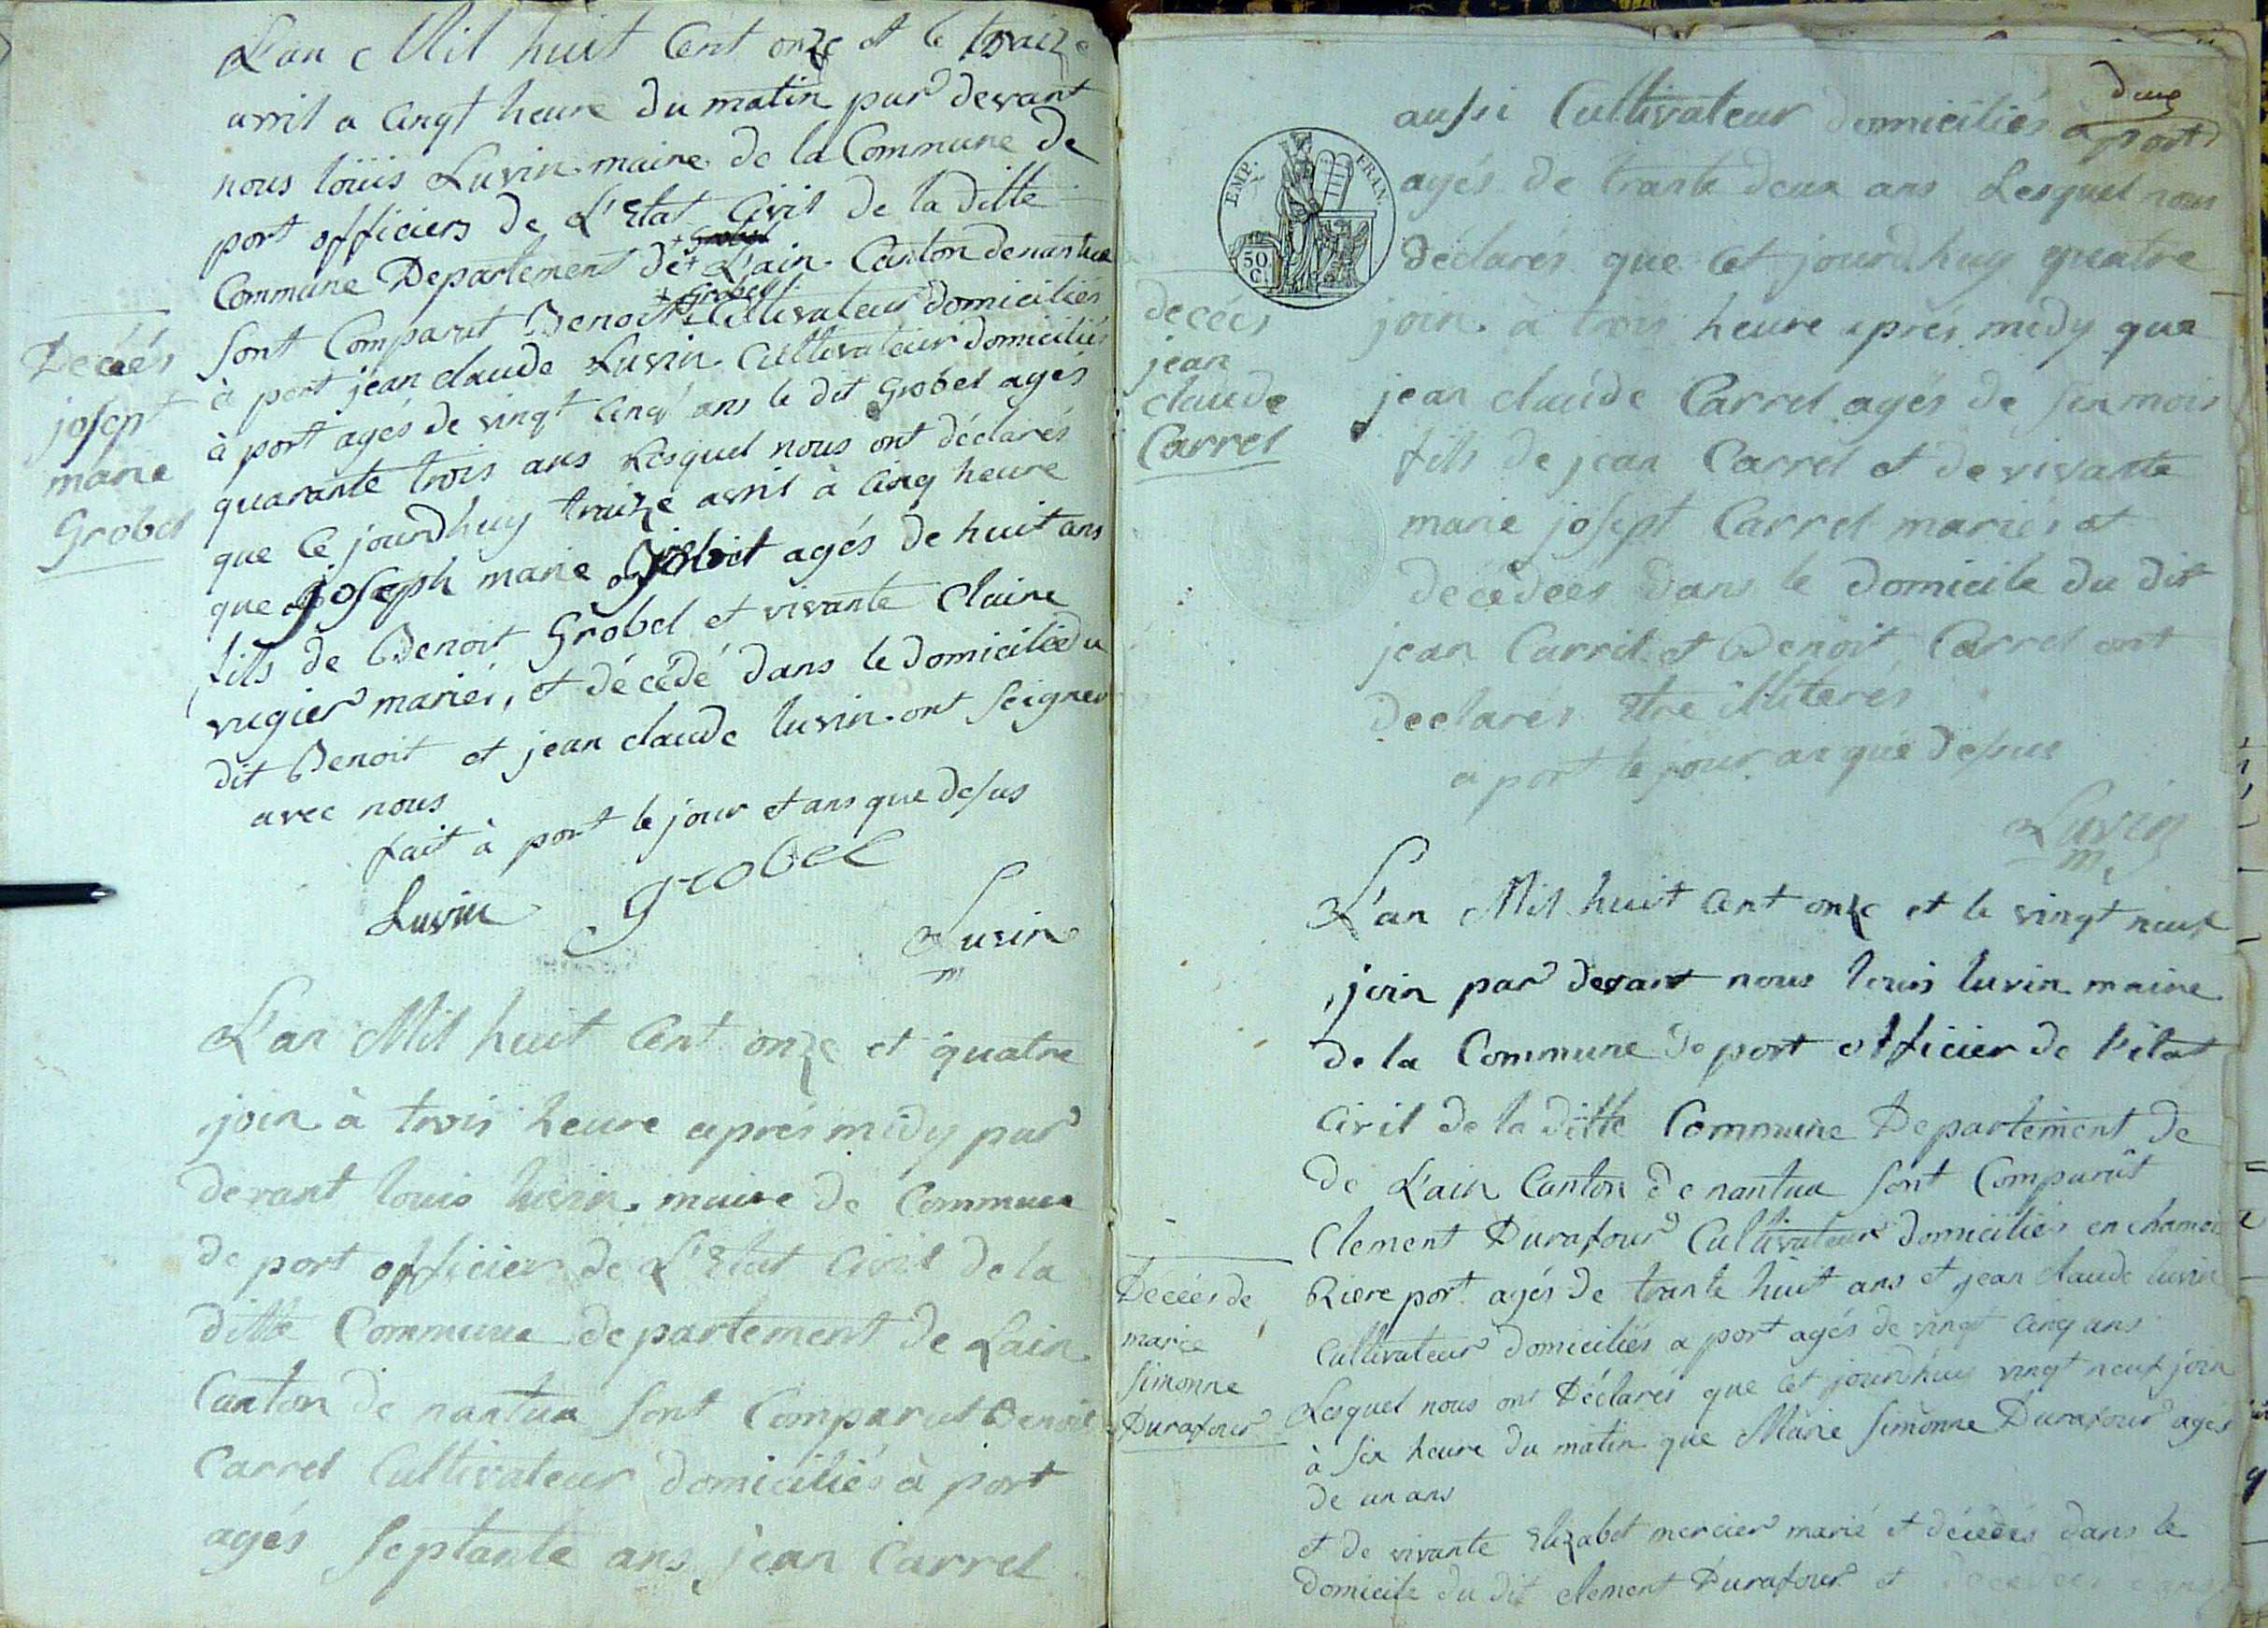 L'an Mil huit Cent onze et le traize
avril a Cinqt heure du matin par devant
nous loüis Luvin maire de la Commune de
port officiers de L'Etat Civil de la ditte
Commune Departement de L'ain Canton de nantua
+ Grobel
Sont Comparut Benoit + Cultivateur domiciliés
à port jean claude Luvin Cultivateur domiciliés
à port agés de vingt Cinq ans le dit Grobel agés
quarante trois ans Lesquel nous ont déclarés
que Ce jourdhuy traize avril à Cinq heure
que joseph marie Grobel agés de huit ans
fils de Benoit Grobel et vivante Claire
vugier mariés, et décédé dans le domicile du
dit Benoit et jean claude luvin ont Seigner
avec nous
fait à port le jour et ans que desus
Luvin Grobel
Luvin
m
Decées
josept
marie
Grobel
L'an Mil huit Cent onze et quatre
join à trois heure aprés midy par
devant louis luvin maire de Commune
de port officier de L'Etat Civil de la
ditte Commune departement de Lain
Canton de nantua Sont Comparut Benoit
Carrel Cultivateur domiciliés à port
agés Septante ans jean Carrel
EMP. FRAN.
50 C.
aussi Cultivateur domiciliés à port
agés de trante deux ans Lesquel nous
déclarés que cet jourdhuy quatre
join à trois heure aprés midy que
jean claude Carrel agés de six mois
fils de jean Carrel et de vivante
marie josept Carrel mariés et
décédées dans le domicile du dit
jean Carrel et Benoit Carrel ont
declarés Etre Miterés
a port le jour an que desus
Luvin
m
decées
jean
claude
Carrel
L'an Mil huit Cent onze et le vingt neuf
join par devant nous louis luvin maire
de la Commune de port officier de l'état
Civil de la ditte Commune Departement de
de L'ain Canton de nantua Sont Comparut
Clement Durafour Cultivateur domiciliés en chamoi
Riere port agés de trante huit ans et jean claude luvin
Cultivateur domiciliés a port agés de vingt Cinq ans
Lesquel nous ont Déclarés que cet jourdhuy vingt neuf join
à Six heure du matin que Marie Simonne Durafour agés
de un ans
et de vivante Elizabet mercier marié et décédés dans le
domicile du dit clement Durafour et
Decées de
marie
Simonne
Durafour